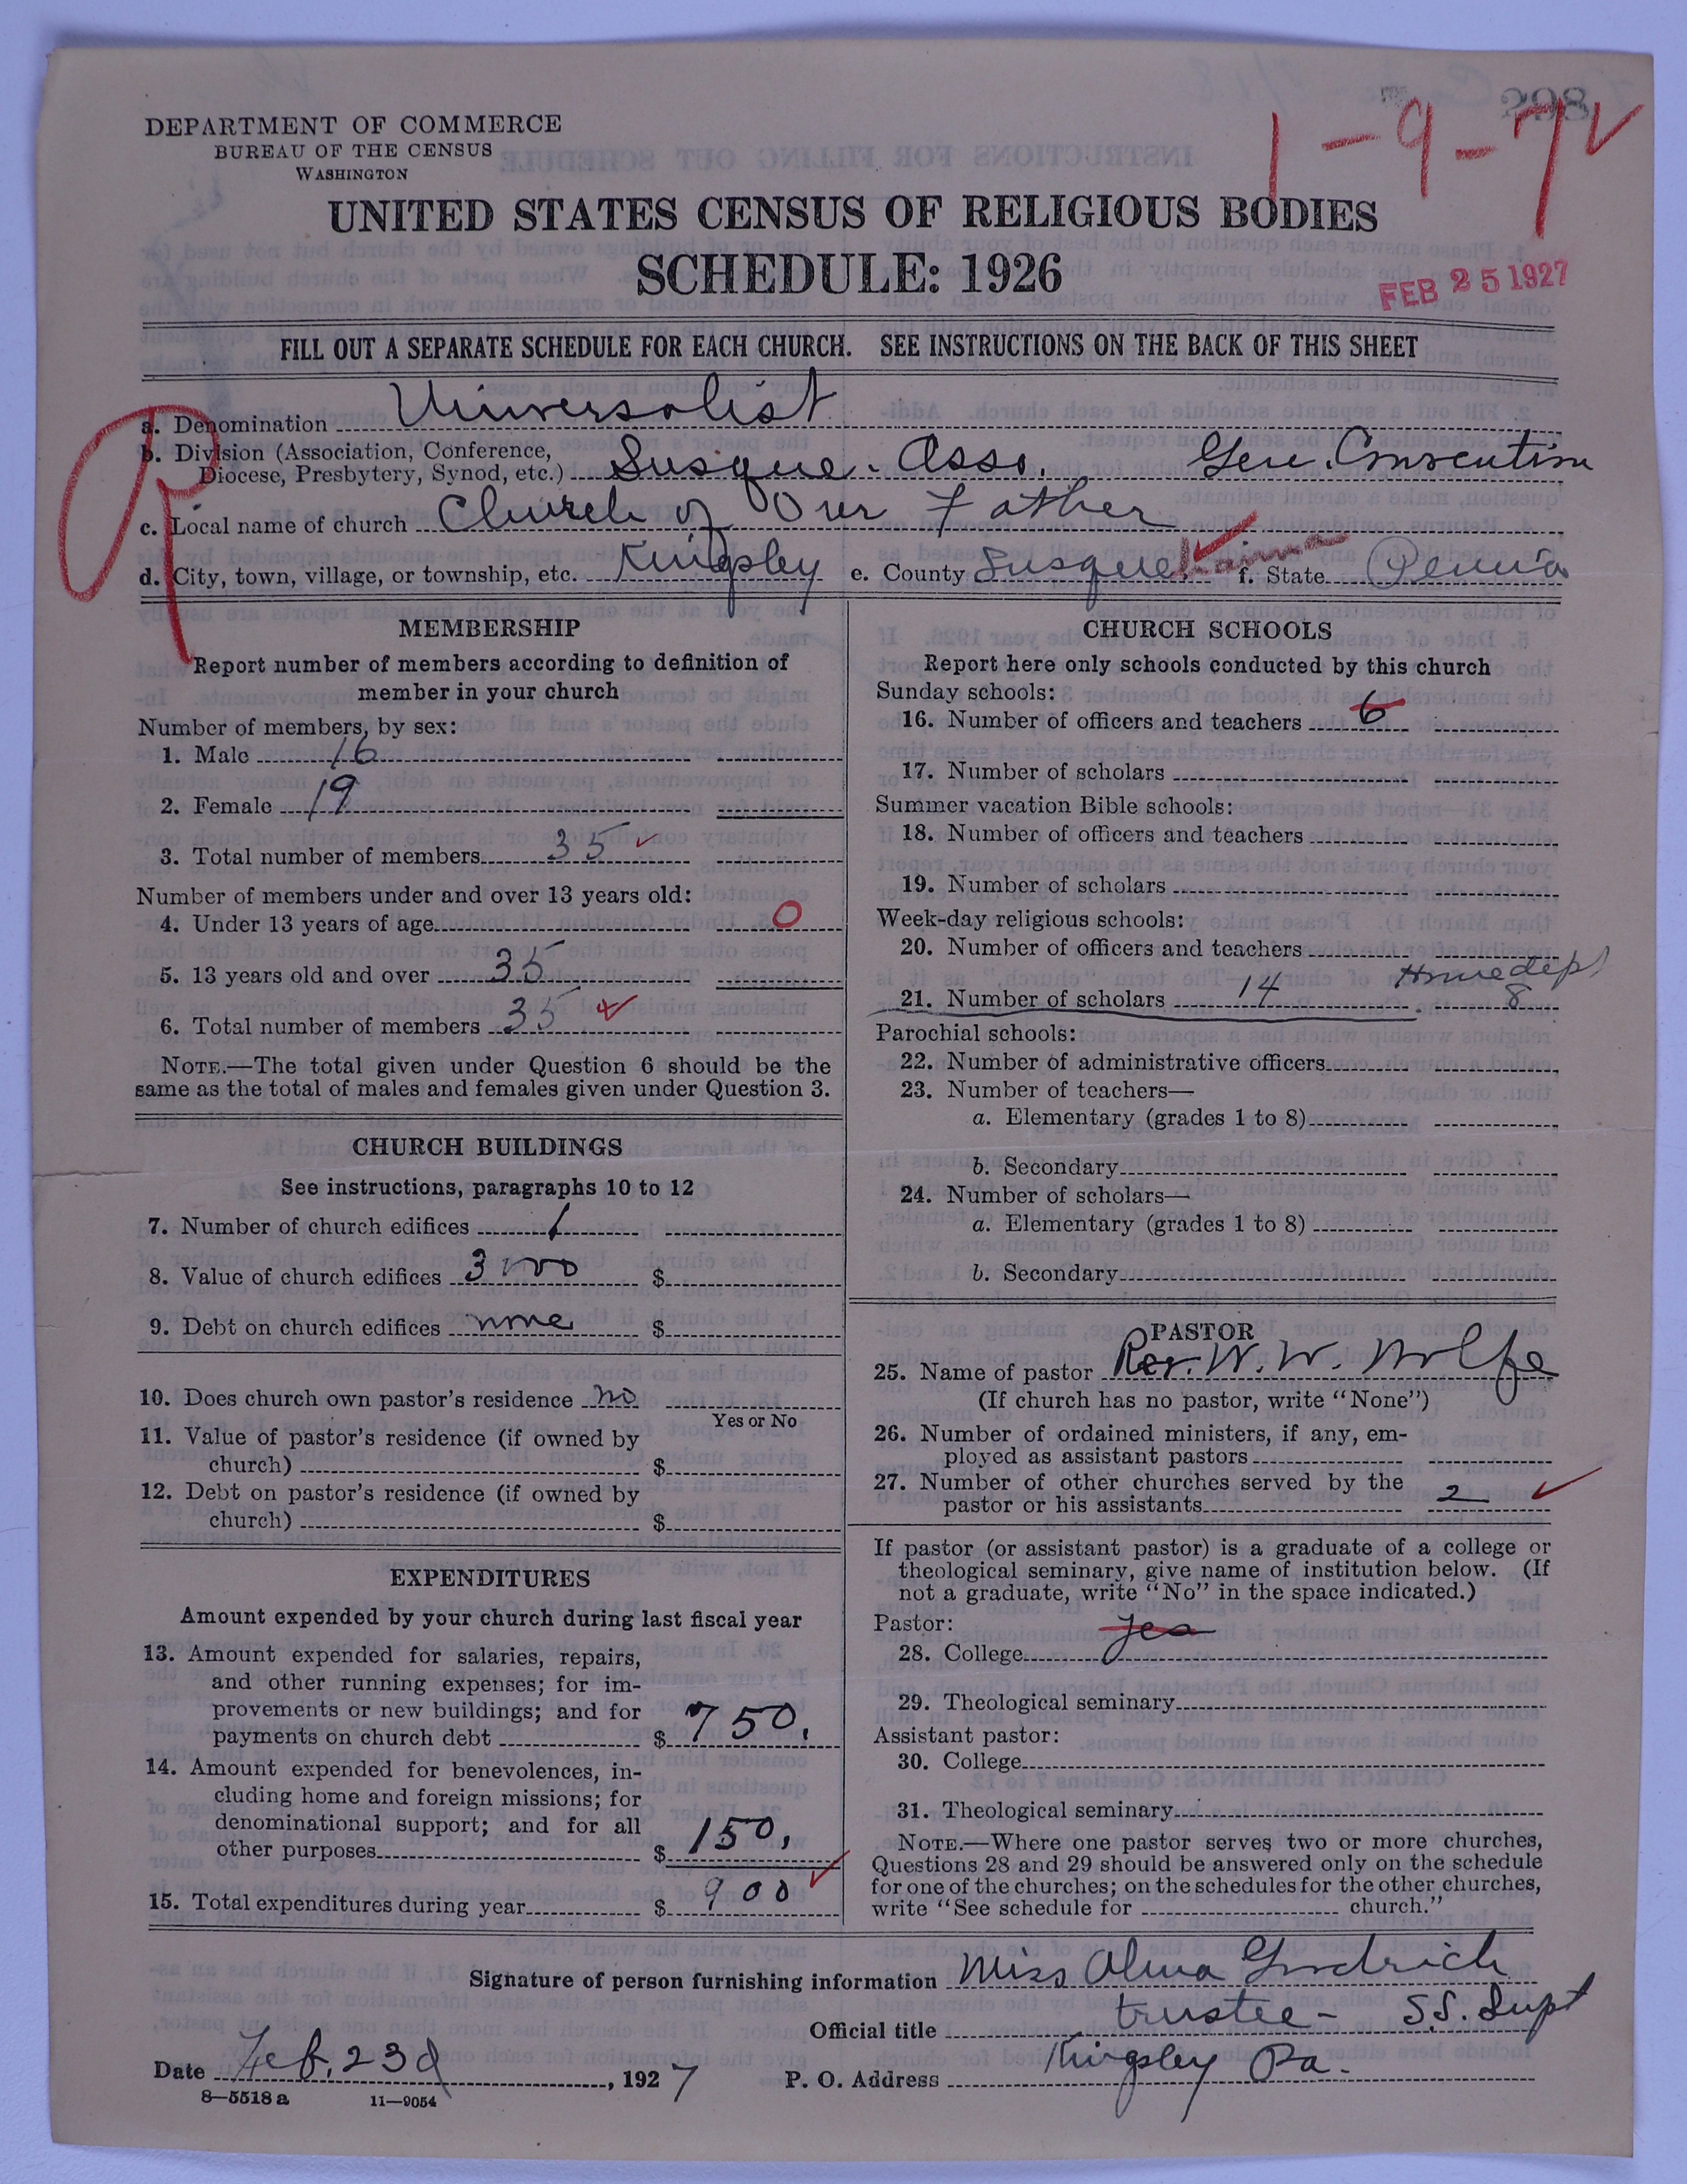 298
1-9-7
DEPARTMENT OF COMMERCE
BUREAU OF THE CENSUS
WASHINGTON
UNITED STATES CENSUS OF RELIGIOUS BODIES
SCHEDULE: 1926
FEB 25 1927
FILL OUT A SEPARATE SCHEDULE FOR EACH CHURCH. SEE INSTRUCTIONS ON THE BACK OF THIS SHEET
a. Denomination Universalist
b. Division (Association, Conference,
Diocese, Presbytery, Synod, etc.) Susque. Asso. Gen. Convention
c. Local name of church Church of Our Father
d. City, town, village, or township, etc. Kingsley e. County Susquehanna f. State Penn'a
MEMBERSHIP
Report number of members according to definition of
member in your church
Number of members, by sex:
1. Male 16
2. Female 19
3. Total number of members 35
Number of members under and over 13 years old:
4. Under 13 years of age 0
5. 13 years old and over 35
6. Total number of members 35
NOTE.—The total given under Question 6 should be the
same as the total of males and females given under Question 3.
CHURCH BUILDINGS
See instructions, paragraphs 10 to 12
7. Number of church edifices 1
8. Value of church edifices 3000 $
9. Debt on church edifices none $
10. Does church own pastor's residence no
Yes or No
11. Value of pastor's residence (if owned by
church) $
12. Debt on pastor's residence (if owned by
church) $
EXPENDITURES
Amount expended by your church during last fiscal year
13. Amount expended for salaries, repairs,
and other running expenses; for im-
provements or new buildings; and for
payments on church debt $ 750.
14. Amount expended for benevolences, in-
cluding home and foreign missions; for
denominational support; and for all
other purposes $ 150.
15. Total expenditures during year $ 900
CHURCH SCHOOLS
Report here only schools conducted by this church
Sunday schools:
16. Number of officers and teachers 6
17. Number of scholars
Summer vacation Bible schools:
18. Number of officers and teachers
19. Number of scholars
Week-day religious schools:
20. Number of officers and teachers
Home dept
21. Number of scholars 14 8
Parochial schools:
22. Number of administrative officers
23. Number of teachers—
a. Elementary (grades 1 to 8)
b. Secondary
24. Number of scholars—
a. Elementary (grades 1 to 8)
b. Secondary
PASTOR
25. Name of pastor Rev. W. W. Wolfe
(If church has no pastor, write "None")
26. Number of ordained ministers, if any, em-
ployed as assistant pastors
27. Number of other churches served by the
pastor or his assistants 2
If pastor (or assistant pastor) is a graduate of a college or
theological seminary, give name of institution below. (If
not a graduate, write "No" in the space indicated.)
Pastor:
28. College yes
29. Theological seminary
Assistant pastor:
30. College
31. Theological seminary
NOTE.—Where one pastor serves two or more churches,
Questions 28 and 29 should be answered only on the schedule
for one of the churches; on the schedules for the other churches,
write "See schedule for church."
Signature of person furnishing information Miss Alma Goodrich
Official title trustee - S.S. Supt
Date Feb. 23d, 1927 P. O. Address Kingsley Pa.
8—5518 a 11—9054